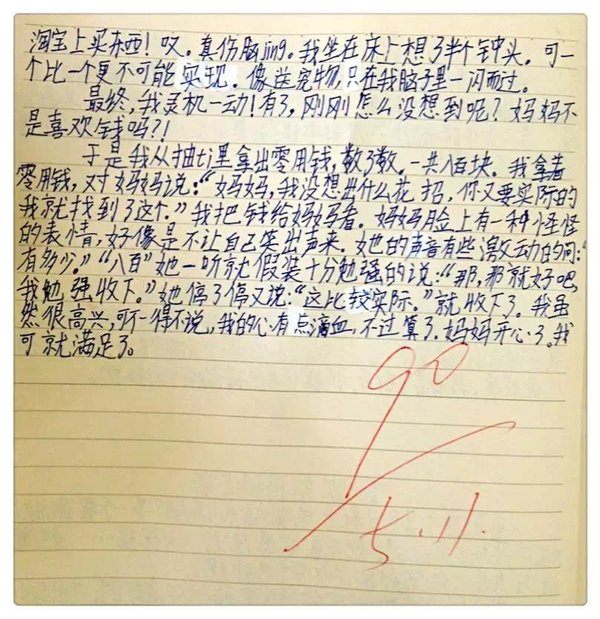 淘宝上买东西！哎。真伤脑jing。我坐在床上想了半个钟头。可一
个比一个更不可能实现。像送宠物，只在我脑子里一闪而过。
最终，我灵机一动！有了，刚刚怎么没想到呢？妈妈不
是喜欢钱吗？！
于是我从抽ti里拿出零用钱，数了数。一共八百块。我拿着
零用钱，对妈妈说：“妈妈，我没想出什么花招，你又要实际的
我就找到了这个。”我把钱给妈妈看。妈妈脸上有一种怪怪
的表情，好像是不让自己笑出声来。她的声音有些激动的问：“
有多少。”“八百”她一听就假装十分勉强的说：“那，那就好吧，
我勉强收下。”她停了停又说：“这比较实际。”就收下了。我虽
然很高兴，可不得不说，我的心有点滴血，不过算了。妈妈开心了。我
可就满足了。
90
5.11.